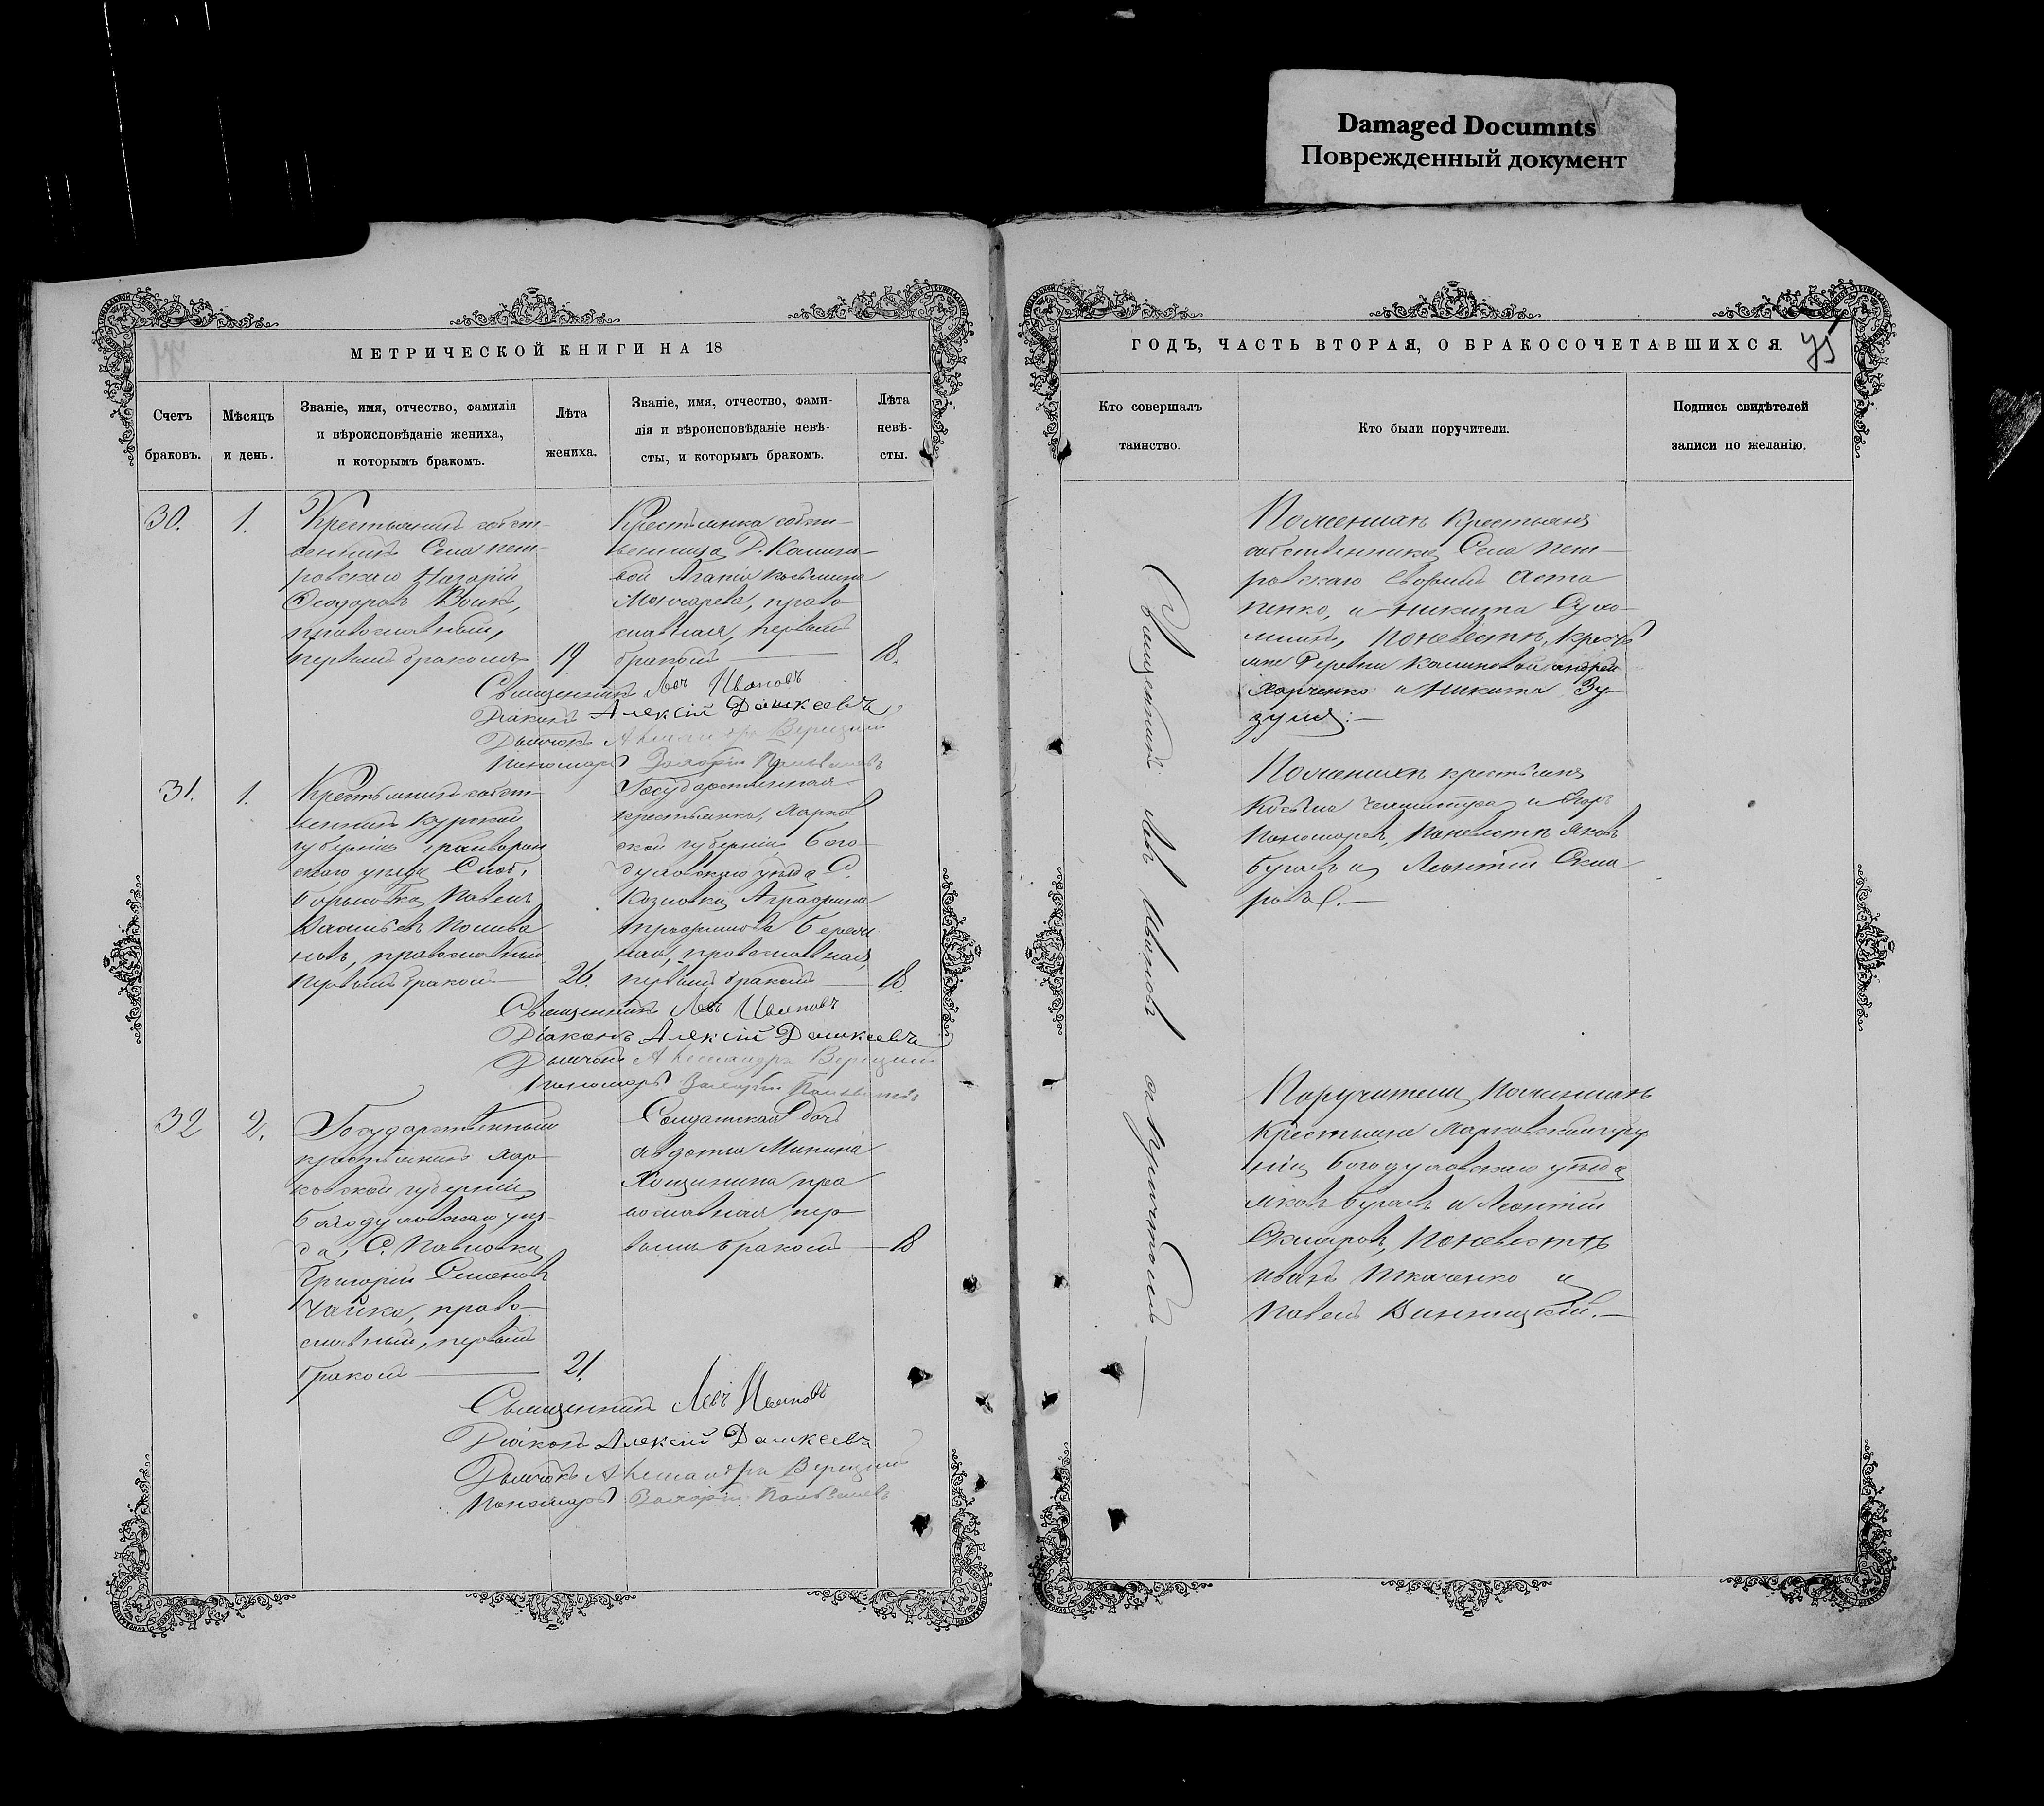 Damaged Documnts
Поврежденный документ
МЕТРИЧЕСКОЙ КНИГИ НА 18
Счетъ браковъ.
Мѣсяцъ и день.
Званіе, имя, отчество, фамилія
и вѣроисповѣданіе жениха,
и которымъ бракомъ.
Лѣта
жениха.
Званіе, имя, отчество, фами-
лія и вѣроисповѣданіе невѣ-
сты, и которымъ бракомъ.
Лѣта
невѣ-
сты.
30.
1.
Крестьянинъ собст-
венникъ Села Пет-
ровскаго Назарій
Ѳеодоровъ Волкъ,
православный,
первымъ бракомъ
19
Крестьянка собст-
венница Д. Калино-
вой Агапія Косьмина
православная, первымъ
бракомъ
18.
Священникъ Левъ Ивановъ
Діаконъ Алексій Дашкеевъ
Дьячокъ Александръ Верецкій
Пономарь Захарій
31.
1.
Крестьянинъ собст-
венникъ Курской
губерніи Грайворон
скаго уѣзда Слоб.
Борисовка Павелъ
новъ, православный
первымъ бракомъ
26.
Государственная
крестьянка, Харьков
ской губерніи Бого-
духовскаго уѣзда С.
Козловки Аграфина
Трофимова
ная, православная,
первымъ бракомъ
18.
Священникъ Левъ Ивановъ
Діаконъ Алексій Дашкеевъ
Дьячокъ Александръ Верецкій
Пономарь Захарій
32
2.
Государственный
крестьянинъ Харь-
ковской губерніи,
Богодуховскаго уѣз-
да, С. Павловки
Григорій Семеновъ
Чайка, право-
славный, первымъ
бракомъ
21.
Солдатская дочь
Авдотья Минина
православная пер-
вымъ бракомъ
18
Священникъ Левъ Ивановъ
Діаконъ Алексій Дашкеевъ
Дьячокъ Александръ Верецкій
Пономарь Захарій
ГОДЪ, ЧАСТЬ ВТОРАЯ, О БРАКОСОЧЕТАВШИХСЯ.
75
Кто совершалъ
таинство.
Кто были поручители.
Подпись свидѣтелей
записи по желанію.
Священникъ Левъ Ивановъ съ причтомъ
По женихѣ Крестьяне
собственники Села Пет-
ровскаго Аста
пенко, и Никита Сухо-
млинъ, по невѣстѣ, кресть
яне Деревни Калиновой Андрей
Харченко и Никита Зу-
зуля:
По женихѣ крестьяне
Косьма и Егоръ
Пономаревъ, по невѣстѣ Яковъ
Бугаевъ и Леонтій Скля
ровъ.
Поручители по женихѣ
Крестьяне Харьковской губер
ніи Богодуховскаго уѣзда
Яковъ Бугаевъ и Леонтій
Скляровъ, по невѣстѣ
Иванъ Ткаченко и
Павелъ Винницкій.